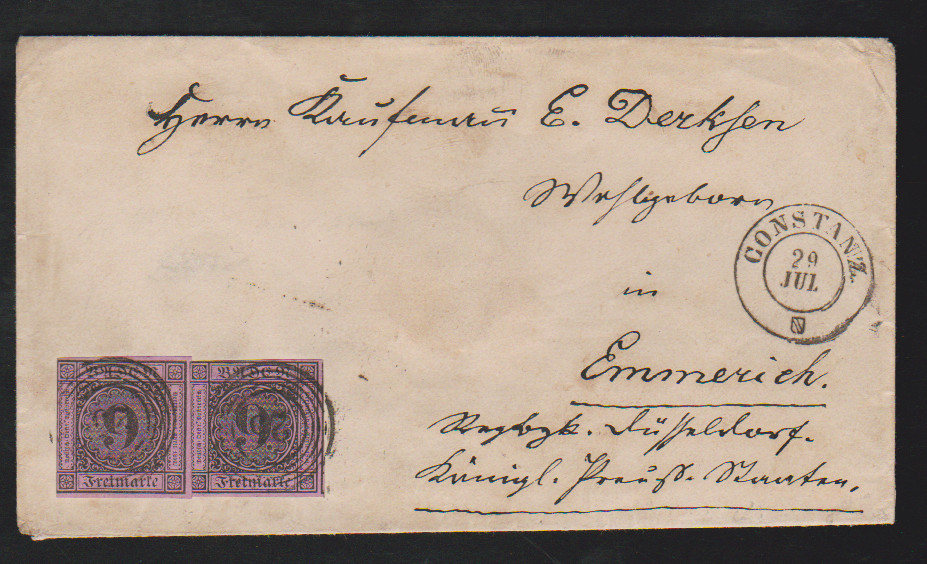 Herrn Kaufmann E. Derksen
Wohlgeborn
CONSTANZ
29
JUL
in
Emmerich.
Regbzk. Düsseldorf.
Königl. Preuß. Staaten.
BADEN
9
Freimarke
BADEN
9
Freimarke